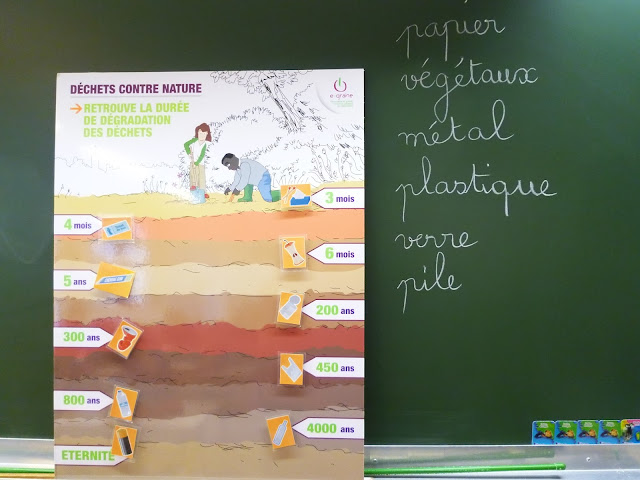 DÉCHETS CONTRE NATURE
→ RETROUVE LA DURÉE
DE DÉGRADATION
DES DÉCHETS
e-graine
3 mois
4 mois
6 mois
5 ans
200 ans
300 ans
450 ans
800 ans
4000 ans
ETERNITÉ
papier
végétaux
métal
plastique
verre
pile